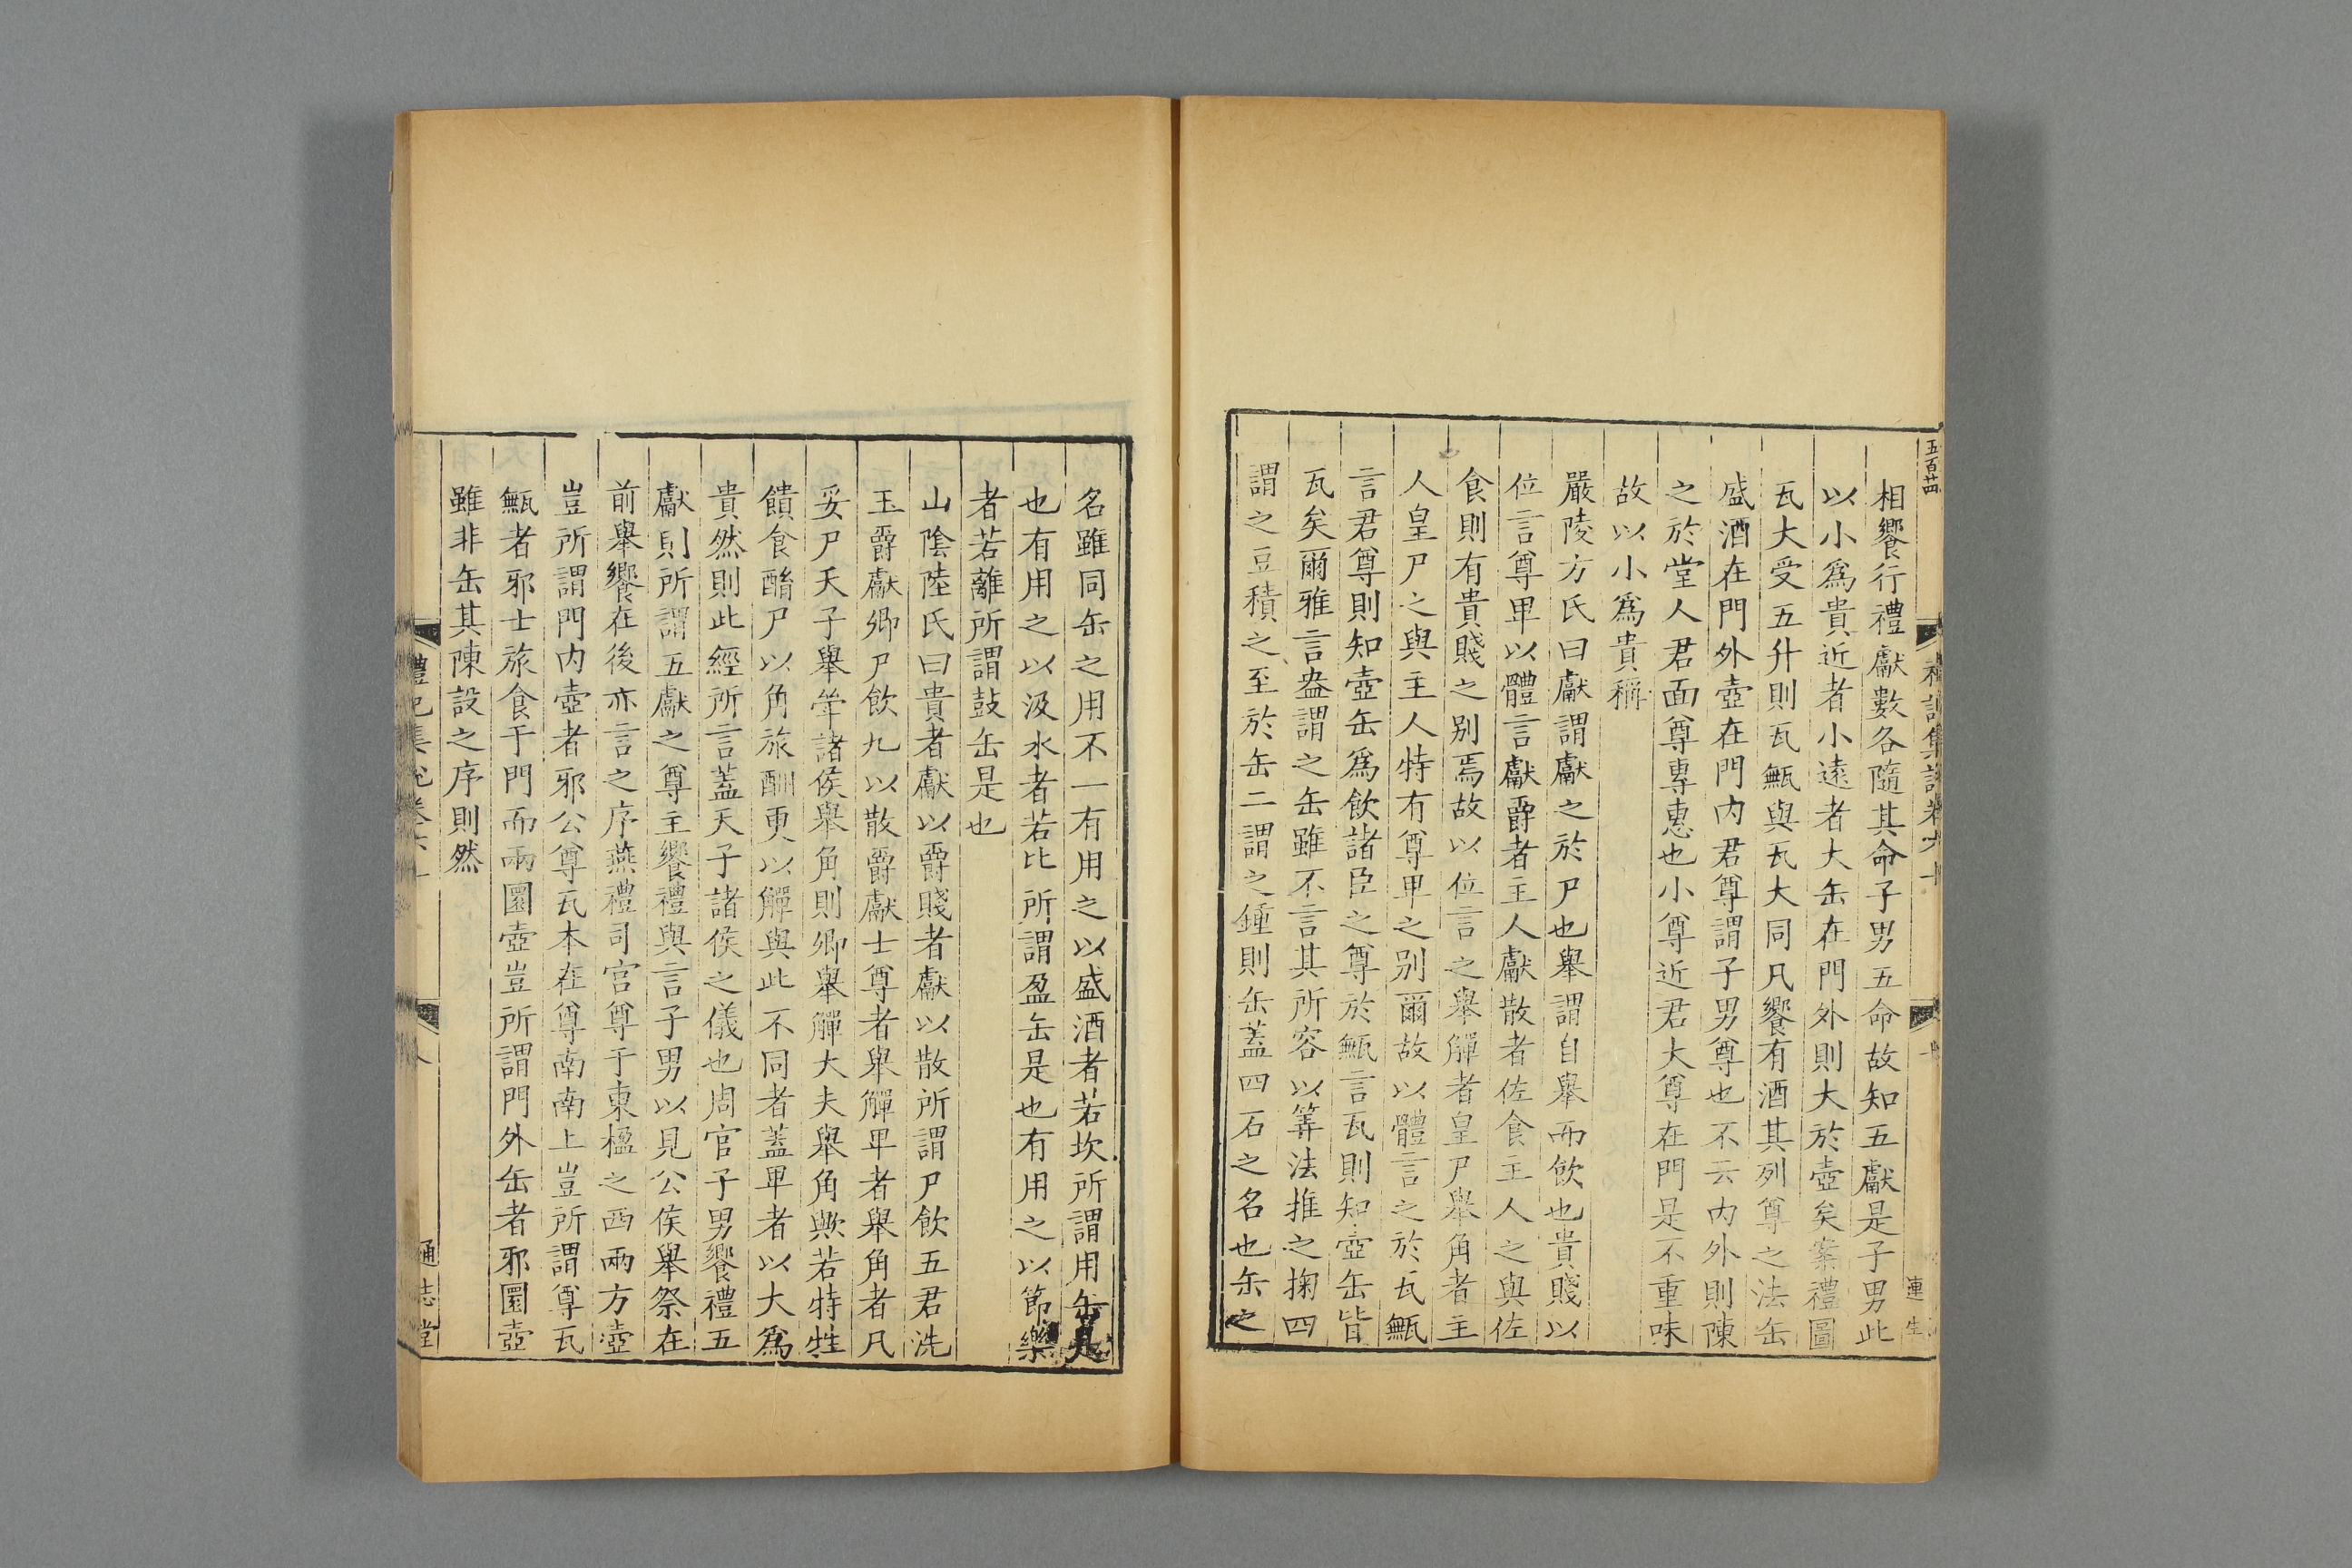 五百廿四
相饗行禮獻數各隨其命子男五命故知五獻是子男此
以小爲貴近者小遠者大缶在門外則大於壺矣案禮圖
瓦大受五升則瓦甒與瓦大同凡饗有酒其列尊之法缶
盛酒在門外壺在門内君尊謂子男尊也不云内外則陳
之於堂人君面尊專惠也小尊近君大尊在門是不重味
故以小爲貴稱
嚴陵方氏曰獻謂獻之於尸也舉謂自舉而飲也貴賤以
位言尊卑以體言獻爵者主人獻散者佐食主人之與佐
食則有貴賤之别焉故以位言之舉觶者皇尸舉角者主
人皇尸之與主人特有尊卑之别爾故以體言之於瓦甒
言君尊則知壺缶爲飲諸臣之尊於甒言瓦則知壺缶皆
瓦矣爾雅言盎謂之缶雖不言其所容以筭法推之掬四
謂之豆積之至於缶二謂之鍾則缶蓋四石之名也缶之
名雖同缶之用不一有用之以盛酒者若坎所謂用缶是
也有用之以汲水者若比所謂盈缶是也有用之以節樂
者若離所謂鼓缶是也
山陰陸氏曰貴者獻以爵賤者獻以散所謂尸飲五君洗
玉爵獻卿尸飲九以散爵獻士尊者舉觶卑者舉角者凡
妥尸天子舉斝諸侯舉角則卿舉觶大夫舉角歟若特牲
饋食酳尸以角旅酬更以觶與此不同者蓋卑者以大爲
貴然則此經所言蓋天子諸侯之儀也周官子男饗禮五
獻則所謂五獻之尊主饗禮與言子男以見公侯舉祭在
前舉饗在後亦言之序燕禮司宮尊于東楹之西兩方壺
豈所謂門内壺者邪公尊瓦本在尊南南上豈所謂尊瓦
甒者邪士旅食于門而兩圜壺豈所謂門外缶者邪圜壺
雖非缶其陳設之序則然
通志堂